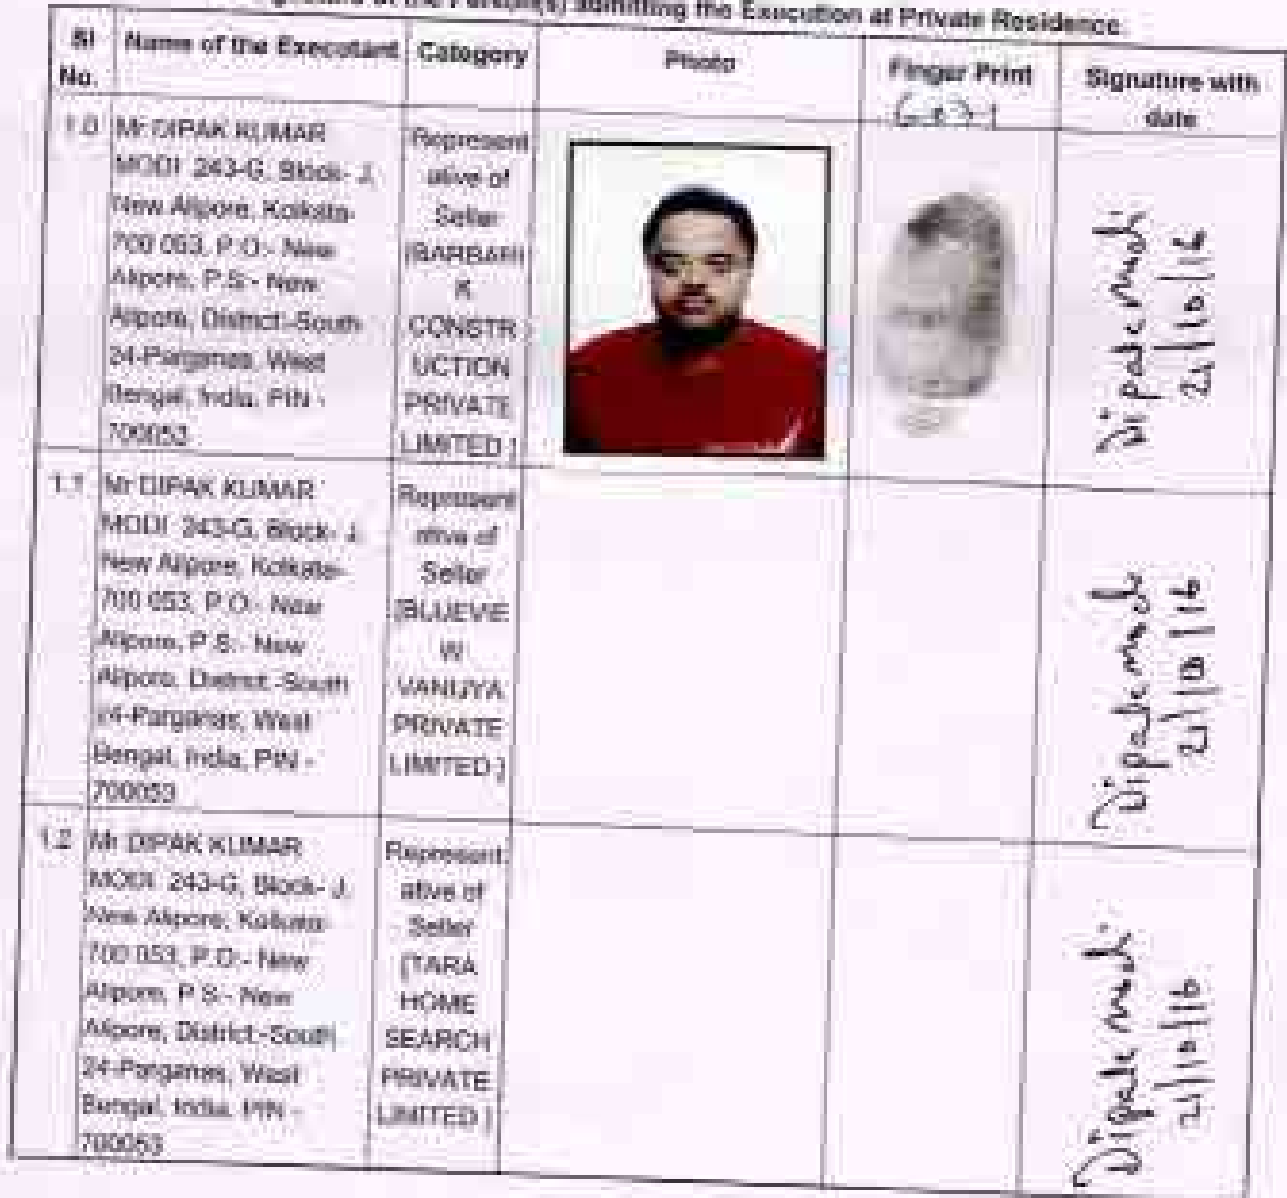 Signature of the Person(s) admitting the Execution at Private Residence.
Sl No.
Name of the Executant
Category
Photo
Finger Print
Signature with date
1.0
Mr DIPAK KUMAR
MODI 243-G, Block- J,
New Alipore, Kolkata-
700 053, P.O:- New
Alipore, P.S:- New
Alipore, District:-South
24-Parganas, West
Bengal, India, PIN -
700053
Represent
ative of
Seller
[BARBARI
K
CONSTR
UCTION
PRIVATE
LIMITED ]
Dipak Modi
21/10/16
1.1
Mr DIPAK KUMAR
MODI 243-G, Block- J,
New Alipore, Kolkata-
700 053, P.O:- New
Alipore, P.S:- New
Alipore, District:-South
24-Parganas, West
Bengal, India, PIN -
700053
Represent
ative of
Seller
[BLUEVIE
W
VANIJYA
PRIVATE
LIMITED ]
Dipak Modi
21/10/16
1.2
Mr DIPAK KUMAR
MODI 243-G, Block- J,
New Alipore, Kolkata-
700 053, P.O:- New
Alipore, P.S:- New
Alipore, District:-South
24-Parganas, West
Bengal, India, PIN -
700053
Represent
ative of
Seller
[TARA
HOME
SEARCH
PRIVATE
LIMITED ]
Dipak Modi
21/10/16